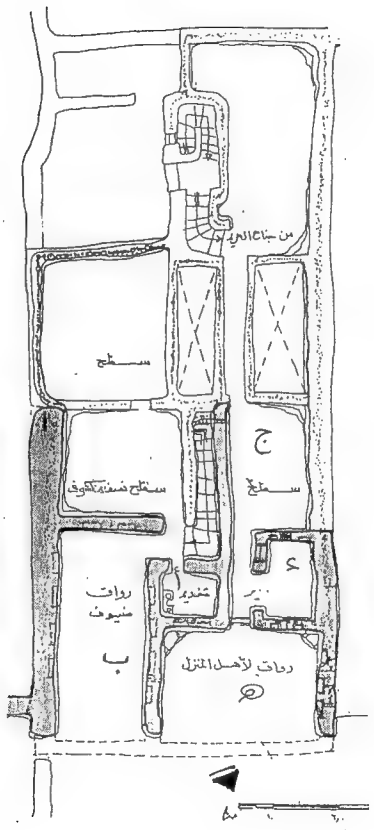 من جناح الحريم
سطح
ج
سطح
سطح نصف مكشوف
رواق
ضيوف
ب
أ
تقديم
ء
بير
رواق لأهل المنزل
هـ